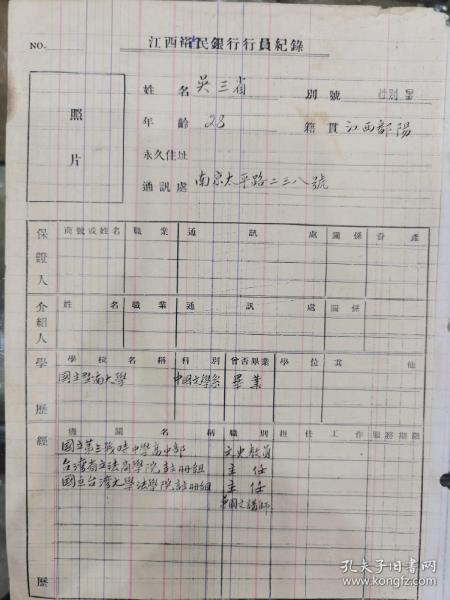 NO.
江西裕民銀行行員紀錄
照片
姓名 吳三省 別號 性別 男
年齡 28 籍貫 江西鄱陽
永久住址
通訊處 南京太平路二三八號
保證人
商號或姓名 職業 通訊處 關係 資產
介紹人
姓名 職業 通訊處 關係
學歷
學校名稱 科別 曾否畢業 學位 其他
國立暨南大學 中國文學系 畢業
經歷
機關名稱 職別 担任工作 服務期限
國立第三戰時中學高中部 文史教員
台灣省立法商學院註冊組 主任
國立台灣大學法學院註冊組 主任
兼國文講師
孔夫子旧书网
www.kongfz.com